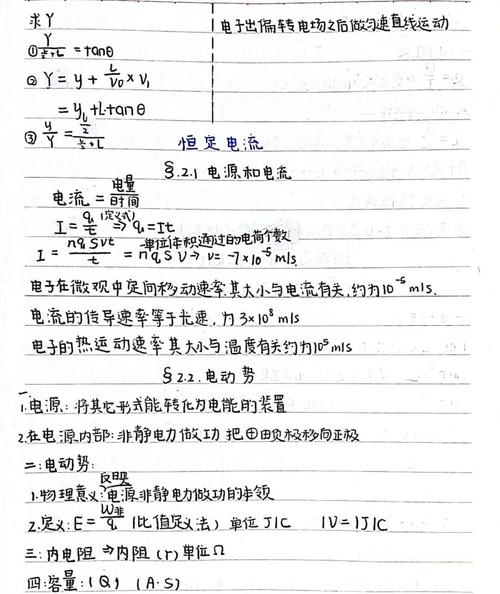 求Y
① Y/(L/2+L) = tanθ
② Y = y + L/V₀ × V₁
= y + L·tanθ
③ y/Y = (L/2)/(L/2+L)
电子出偏转电场之后做匀速直线运动
恒定电流
§.2.1 电源和电流
电流 = 电量/时间
I = q/t (定义式) ⇒ q = It
I = nqSvt/t = nqSv → v = -7×10⁻⁵ m/s
单位体积通过的电荷个数
电子在微观中定向移动速率其大小与电流有关,约为10⁻⁵m/s.
电流的传导速率等于光速,为3×10⁸m/s
电子的热运动速率其大小与温度有关约为10⁵m/s
§2.2.电动势
一.
1.电源:将其它形式能转化为电能的装置
2.在电源内部:非静电力做功 把⊕由负极移向正极
二:电动势:
1.物理意义:反映电源非静电力做功的本领
2.定义:E = W非/q (比值定义法) 单位J/C 1V=1J/C
三:内电阻 ⇒ 内阻(r)单位Ω
四:容量:(Q) (A·S)